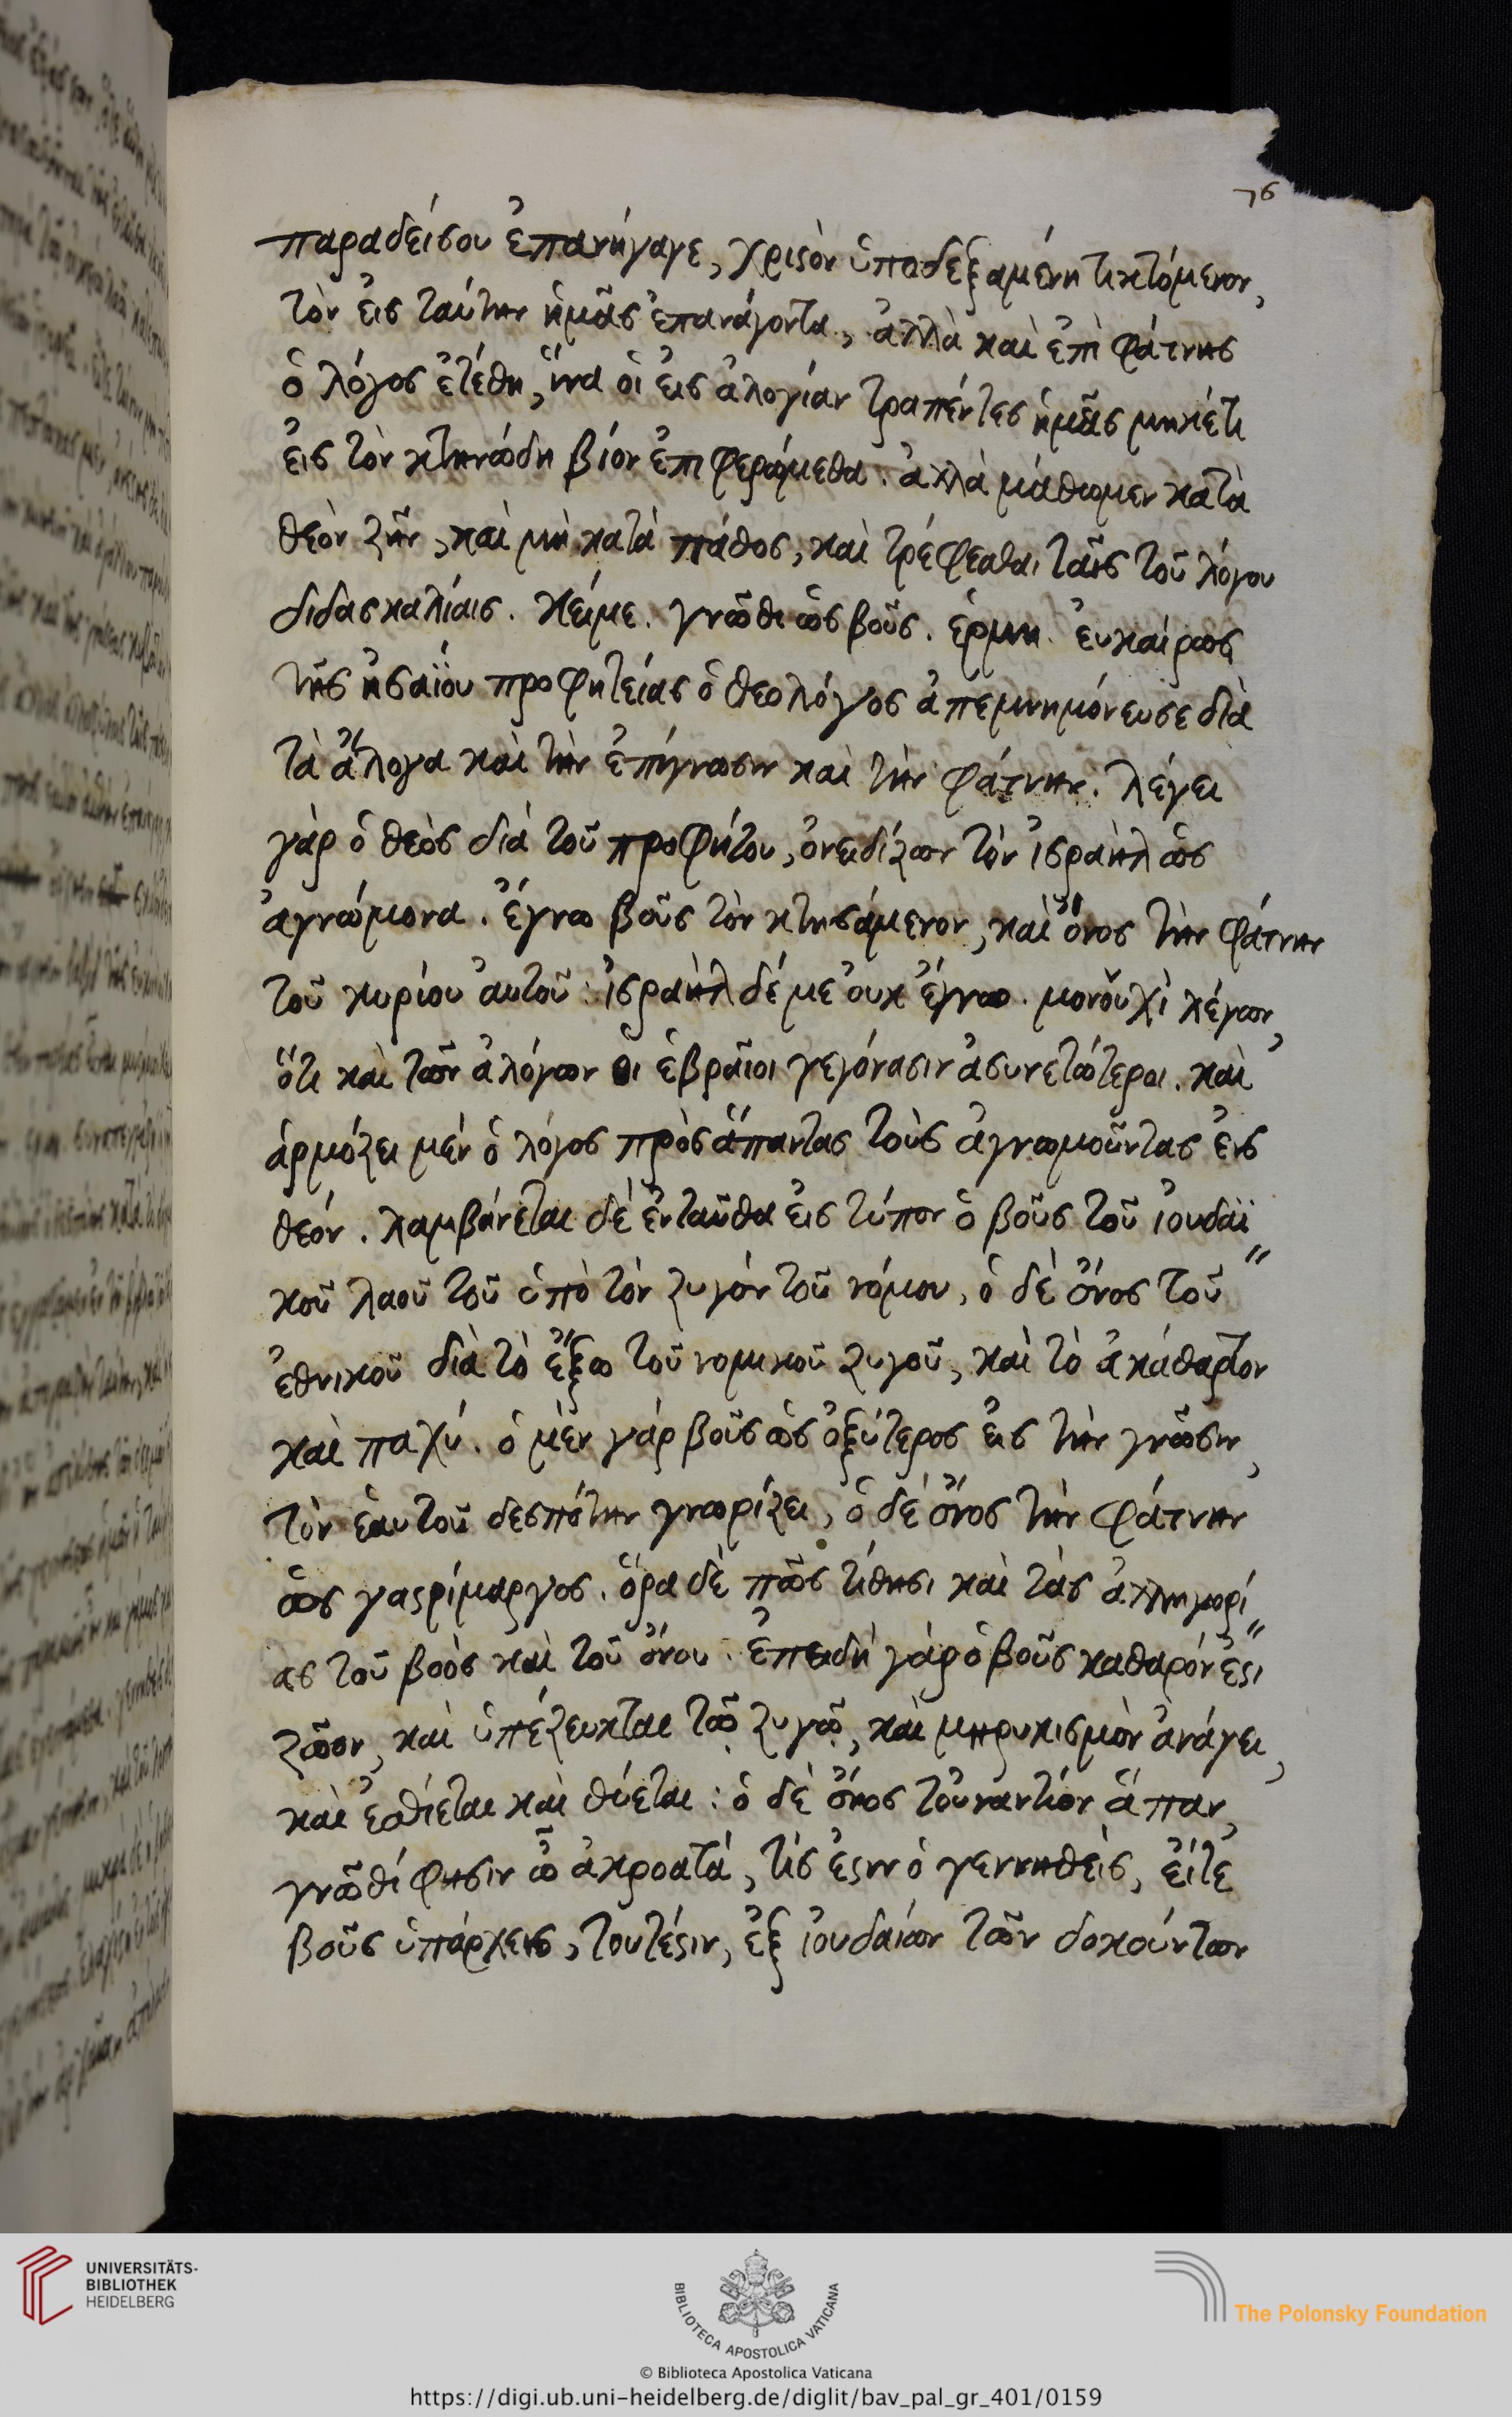 76
παραδείσου ἐπανήγαγε, χριστὸν ὑποδεξαμένη τικτόμενον,
τὸν εἰς ταύτην ἡμᾶς ἐπανάγοντα, ἀλλὰ καὶ ἐπὶ φάτνης
ὁ λόγος ἐτέθη, ἵνα οἱ εἰς ἀλογίαν τραπέντες ἡμᾶς μηκέτι
εἰς τὸν κτηνώδη βίον ἐπιφερώμεθα. ἀλλὰ μάθωμεν κατὰ
θεὸν ζῆν, καὶ μὴ κατὰ πάθος, καὶ τρέφεσθαι ταῖς τοῦ λόγου
διδασκαλίαις. κείμε. γνῶθι ὡς βοῦς. ἑρμη. εὐκαίρως
τῆς ἠσαΐου προφητείας ὁ θεολόγος ἀπεμνημόνευσε διὰ
τὰ ἄλογα καὶ τὴν ἐπίγνωσιν καὶ τὴν φάτνην. λέγει
γὰρ ὁ θεὸς διὰ τοῦ προφήτου, ὀνειδίζων τὸν ἰσραὴλ ὡς
ἀγνώμονα. ἔγνω βοῦς τὸν κτησάμενον, καὶ ὄνος τὴν φάτνην
τοῦ κυρίου αὐτοῦ· ἰσραὴλ δέ με οὐκ ἔγνω. μονοῦχὶ λέγων,
ὅτι καὶ τῶν ἀλόγων οἱ ἑβραῖοι γεγόνασιν ἀσυνετώτεροι. καὶ
ἁρμόζει μὲν ὁ λόγος πρὸς ἅπαντας τοὺς ἀγνωμοῦντας εἰς
θεόν. λαμβάνεται δὲ ἐνταῦθα εἰς τύπον ὁ βοῦς τοῦ ἰουδαϊ
κοῦ λαοῦ τοῦ ὑπὸ τὸν ζυγὸν τοῦ νόμου, ὁ δὲ ὄνος τοῦ
ἐθνικοῦ διὰ τὸ ἔξω τοῦ νομικοῦ ζυγοῦ, καὶ τὸ ἀκάθαρτον
καὶ παχύ. ὁ μὲν γὰρ βοῦς ὡς ὀξύτερος εἰς τὴν γνῶσιν,
τὸν ἑαυτοῦ δεσπότην γνωρίζει, ὁ δὲ ὄνος τὴν φάτνην
ὡς γαστρίμαργος. ὅρα δὲ πῶς τίθησι καὶ τὰς ἀλληγορί
ας τοῦ βοὸς καὶ τοῦ ὄνου. ἐπειδὴ γὰρ ὁ βοῦς καθαρόν ἐστι
ζῶον, καὶ ὑπέζευκται τῷ ζυγῷ, καὶ μηρυκισμὸν ἀνάγει,
καὶ ἐσθίεται καὶ θύεται: ὁ δὲ ὄνος τοὐναντίον ἅπαν,
γνῶθί φησιν ὦ ἀκροατά, τίς ἐστιν ὁ γεννηθείς, εἴτε
βοῦς ὑπάρχεις, τουτέστιν, ἐξ ἰουδαίων τῶν δοκούντων
UNIVERSITÄTS-
BIBLIOTHEK
HEIDELBERG
BIBLIOTECA APOSTOLICA VATICANA
The Polonsky Foundation
© Biblioteca Apostolica Vaticana
https://digi.ub.uni-heidelberg.de/diglit/bav_pal_gr_401/0159